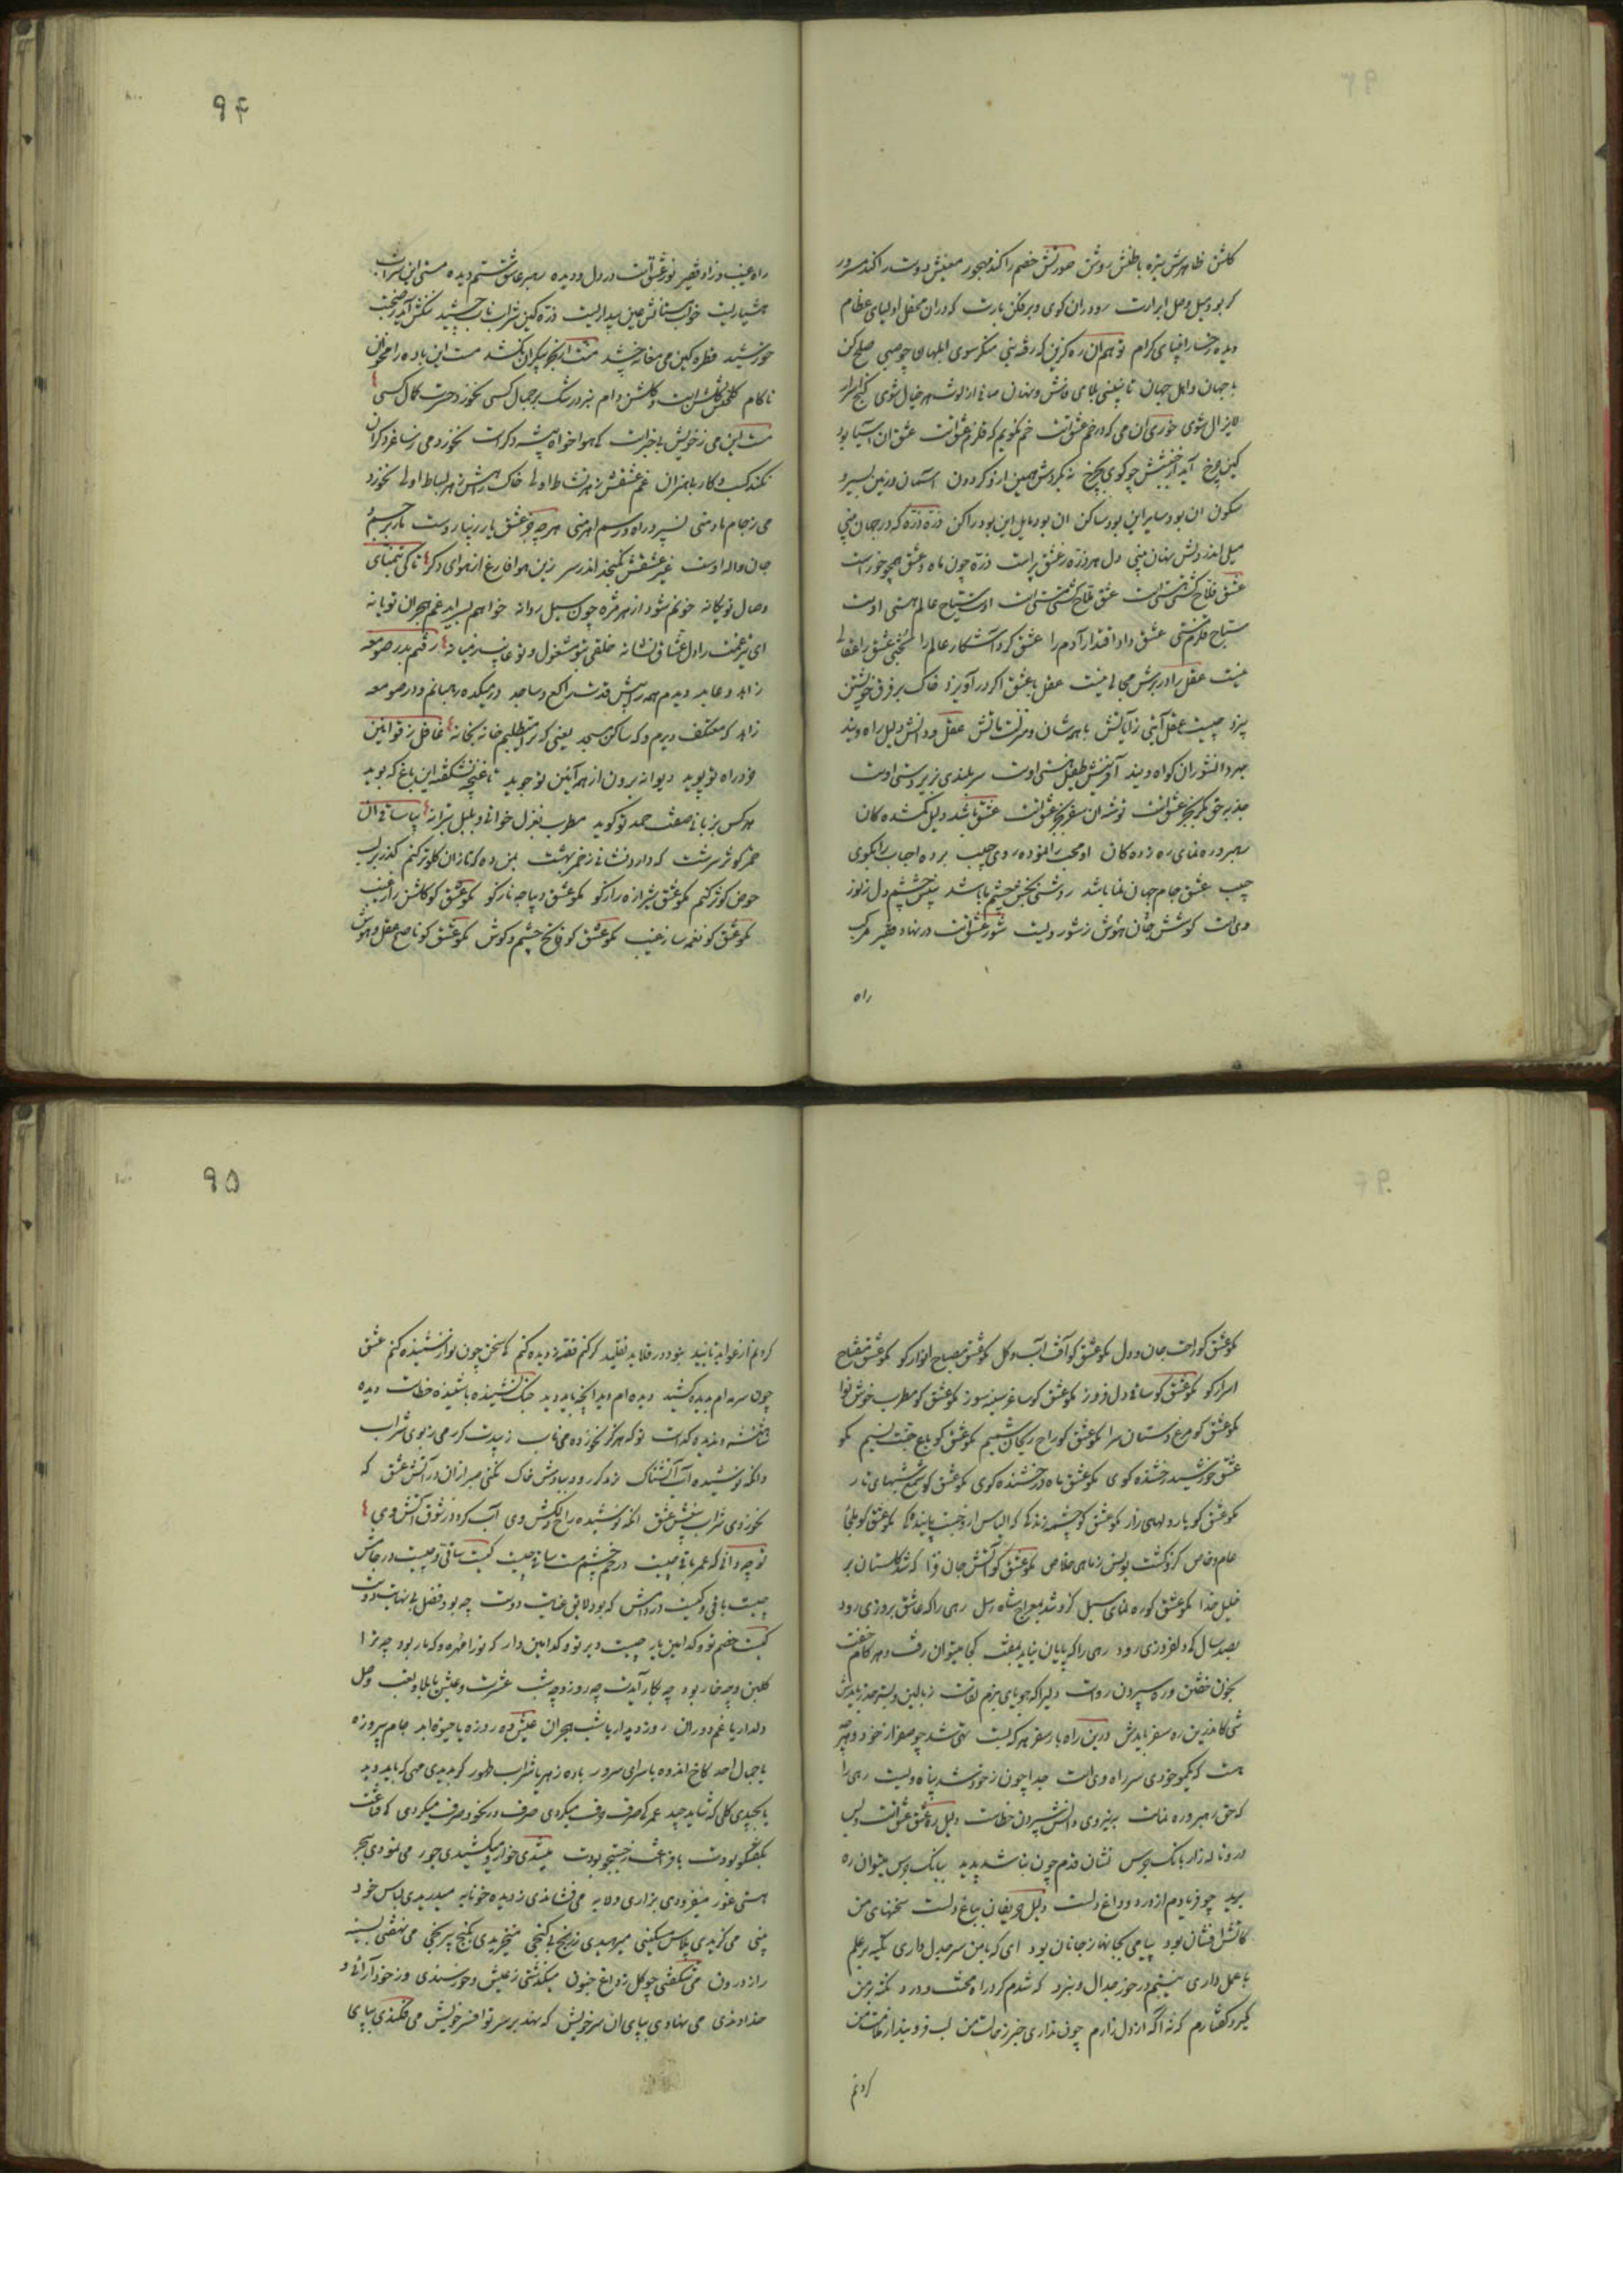 کلشن ظاهرش تیره باطنش روشن صورتش خصم را کند مهجور معنیش دوست را کند مسرور
کر بود میل وصل ابرارت رو در ان کوی و برفکن بارت که در ان محفل اولیای عظام
دیده رخسار اتقیای کرام تو هم ان ره کزین که رفته بینی منکر سوی ابلهان چو صبی صلح کن
با جهان و اهل جهان تا نبینی بلای فاش و نهان صاف از لوث هر خیال شوی کنج اسرار
لایزال شوی خوری ان می که در خم عشق است خم نکویم که قلزم عشق است عشق ان آسیا بود
کین چرخ آید از جنبشش چو کوی بچرخ نه بکردش همین ازو کردون آسمان و زمین بسیر و
سکون ان بود سایر این بود ساکن ان بود مایل این بود راکن ذره ذره که در جهان بینی
میلی اندر دلش نهان بینی دل هر ذره ز عشق پر است ذره چون ماه و عشق همچو خور است
عشق فلاح کشت هستی است عشق ملاح کشتی هستی است اوست سیاح عالم هستی اوست
سباح قلزم هستی عشق داد اقتدار آدم را عشق کرد آشکار عالم را بختی عشق را عقالی
نیست عقل را در برش مجالی نیست عقل با عشق اکر در آویزد خاک بر فرق خویشتن
بیزد چیست عقل آیتی ز آیاتش با همه شان و منزلت ماتش عقل و دانش دلیل راه ویند
همه دانشوران کواه ویند آفرینش طفیل هستی اوست سربلندی بزیر دستی اوست
جذبه حق مکو بجز عشق است توشه ان سفر بجز عشق است عشق باشد دلیل کمشده کان
رهبر و رهنمای ره زده کان او محب را نموده روی حبیب برده احباب را بکوی
حبیب عشق جام جهان نما باشد روشنی بخش چشم ما باشد بینش چشم دل ز نور
وی است کوشش جان بهوش ز شور ویست شور عشق است در نهاد فقیر مرکب
راه
۹۴
راه غیب و زاد فقیر نور عشق است در دل و دیده رهبر عاشق ستم دیده مستی این شراب
هشیاریست خواب مستانش عین بیداریست ذره کین شراب ناب چشید نکنش آید ز صحبت
خورشید قطره کین می مغانه چشد منت از بحر بیکران نکشد مست این باده را مخوان
ناکام کلخنش کلشن است و کلشن دام نبرد رشک بر جمال کسی نخورد حسرت کمال کسی
مست این می ز خویش بیخبر است که هوا خواه پیشه دکر است نخورد می ز ساغر دکران
نکند کسب و کار با هنران غم عشقش ز هر نشاط اولی خاک راهش ز هر بساط اولی نخورد
می ز جام ما و منی نسپرد راه و رسم اهرمنی هر چه جز عشق یار بنیاد دست بار بر جسم
جان واله اوست غیر عشقش نکنجد اندر سر زین هوا فارغ از هوای دکر تا کی بتمنای
وصال تو یکانه خونم شود از هر مژه چون سیل روانه خواهم بسر آید غم هجران تو یا نه
ای تیر غمت را دل عشاق نشانه خلقی بتو مشغول و تو غایب ز میانه رفتم بدر صومعه
زاهد و عابد دیدم همه را پیش قدت راکع و ساجد در میکده رهبانم و در صومعه
زاهد که معتکف دیرم و که ساکن مسجد یعنی که ترا میطلبم خانه بخانه عاقل ز قوانین
خرد راه تو پوید دیوانه برون از همه آئین تو جوید تا غنچه نشکفته این باغ که بوید
هر کس بزبانی صفت حمد تو کوید مطرب بغزل خوانی و بلبل بترانه بیا ساقی آن
خم کوثر سرشت که دارد نشانی ز خمر بهشت بمن ده که تا زان کلو تر کنم کذر بر لب
حوض کوثر کنم مکو عشق شیرازه راز کو مکو عشق دیباچه ناز کو مکو عشق کو کاشف راز غیب
مکو عشق کو نغمه ساز غیب مکو عشق کو فاتح چشم و کوش مکو عشق کو ناصح عقل و هوش
مکو عشق کو راحت جان و دل مکو عشق کو آفت آب و کل مکو عشق مصباح انوار کو مکو عشق مفتاح
اسرار کو مکو عشق کو ساقی دل فروز مکو عشق کو ساغر سینه سوز مکو عشق کو مطرب خوش نوا
مکو عشق کو مرغ دستان سرا مکو عشق کو راح ریحان شمیم مکو عشق کو باغ جنت نسیم مکو
عشق خورشید رخشنده کوی مکو عشق ماه درخشنده کوی مکو عشق کو شمع شبهای تار
مکو عشق کو یار دلهای زار مکو عشق کو چشمه زندکی که الیاس ازو جست پایندکی مکو عشق کو ملجأ
عام و خاص کزو کشت یونس ز ماهی خلاص مکو عشق کو آتش جان فزا که شد کلستان بر
خلیل خدا مکو عشق کو رهنمای سبل کزو شد بمعراج شاه رسل رهی را که عاشق بروزی رود
بصد سال کی دلفروزی رود رهی را که پایان نیاید بهفت کجا میتوان رفت در هر کام خفت
بخون خفتن و ره سپردن رواست دلیرا که جویای بزم لقاست ز بالین و بستر حذر بایدش
شبی کاندرین ره سفر بایدش درین راه بار سفر هر که بست تهی شد چو صفر از خود و هر چه
هست که یکمو خودی سد راه وی است جدا چون ز خود شد پناه ویست رهی را
که حق رهبر و رهنماست به نیروی دانش سپردن خطاست دلیل ره عشق عشق است و بس
درو ناله زار بانک جرس نشان قدم چون نباشد پدید ببانک جرس میتوان ره
برید چو فریادم از درد و داغ دلست دلیل حریفان بباغ دلست سخنهای من
کاتش افشان بود پیامی بجانها ز جانان بود ای که با من سر جدل داری تکیه بر علم
با عمل داری نیستم در خور جدال و نبرد که شدم کرد راه محنت و درد نکته بر من
مکیر و کفتارم که نه اکه از دل زارم چون نداری خبر ز حالت من لب فرو بند از ملامت من
کردنم
۹۵
کردنم از غوایه تأیید نبود در قلاید تقلید کر کنم قصه ز دیده کنم کی سخن چون تو از شنیده کنم عشق
چون سرمه ام بدیده کشید دیده ام دید انچه باید دید جنک نشنیده با شنیده خطاست دیده
شاهنشه و ندیده کداست تو که هرکز نخورده می ناب زیبدت کر رمی ز بوی شراب
وانکه نوشیده آب آتشناک نزد کر رود ببادش خاک نکنی صبر از ان در آتش عشق که
نخوردی شراب بیغش عشق انکه نوشیده راح دلکش وی آب کردد ز شوق آتش وی
تو چه دانی که عمر باقی چیست در خم چشم مست ساقی چیست کیست ساقی و چیست در جامش
چیست باقی و کیست در دامش که بود لایق عنایت دوست چه بود فضل بی نهایت دوست
کیست خصم تو و کدامین یار چیست دیر تو و کدامین دار که نوازفره و که مار بود چه ترا
کلبن و چه خار بود چه بکار آیدت چه روز و چه شب عشرت و عیش یا بلا و تعب وصل
دلدار یا غم دوران روز دیدار یا شب هجران عیش ده روزه یا حیوة ابد جام پیروزه
یا جمال احد کاخ اندوه یا سرای سرور باده زهر یا شراب طهور کر بدیدی مهی که باید دید
یا بچیدی کلی که شاید چید عمر کی صرف وقف میکردی صرف در نحو و صرف میکردی کی قناعت
بکفتکو بودت یا فراغت ز جستجو بودت میشدی خوار و میکشیدی جور می نمودی بعجز
هستی غور میفزودی بزاری و لابه می فشاندی ز دیده خونابه میدریدی لباس خود
بینی می کزیدی پلاس مسکینی میرمیدی ز رنج بی کنجی میخریدی بکنج پیر کنجی می نهفتی بسینه
راز درون می شکفتی چو کل ز داغ جنون میکذشتی ز عیش و خورسندی وز خود آرائی و
خداوندی می نهادی بپای ان سر خویش که نهد بر سر تو افسر خویش می فکندی بپای